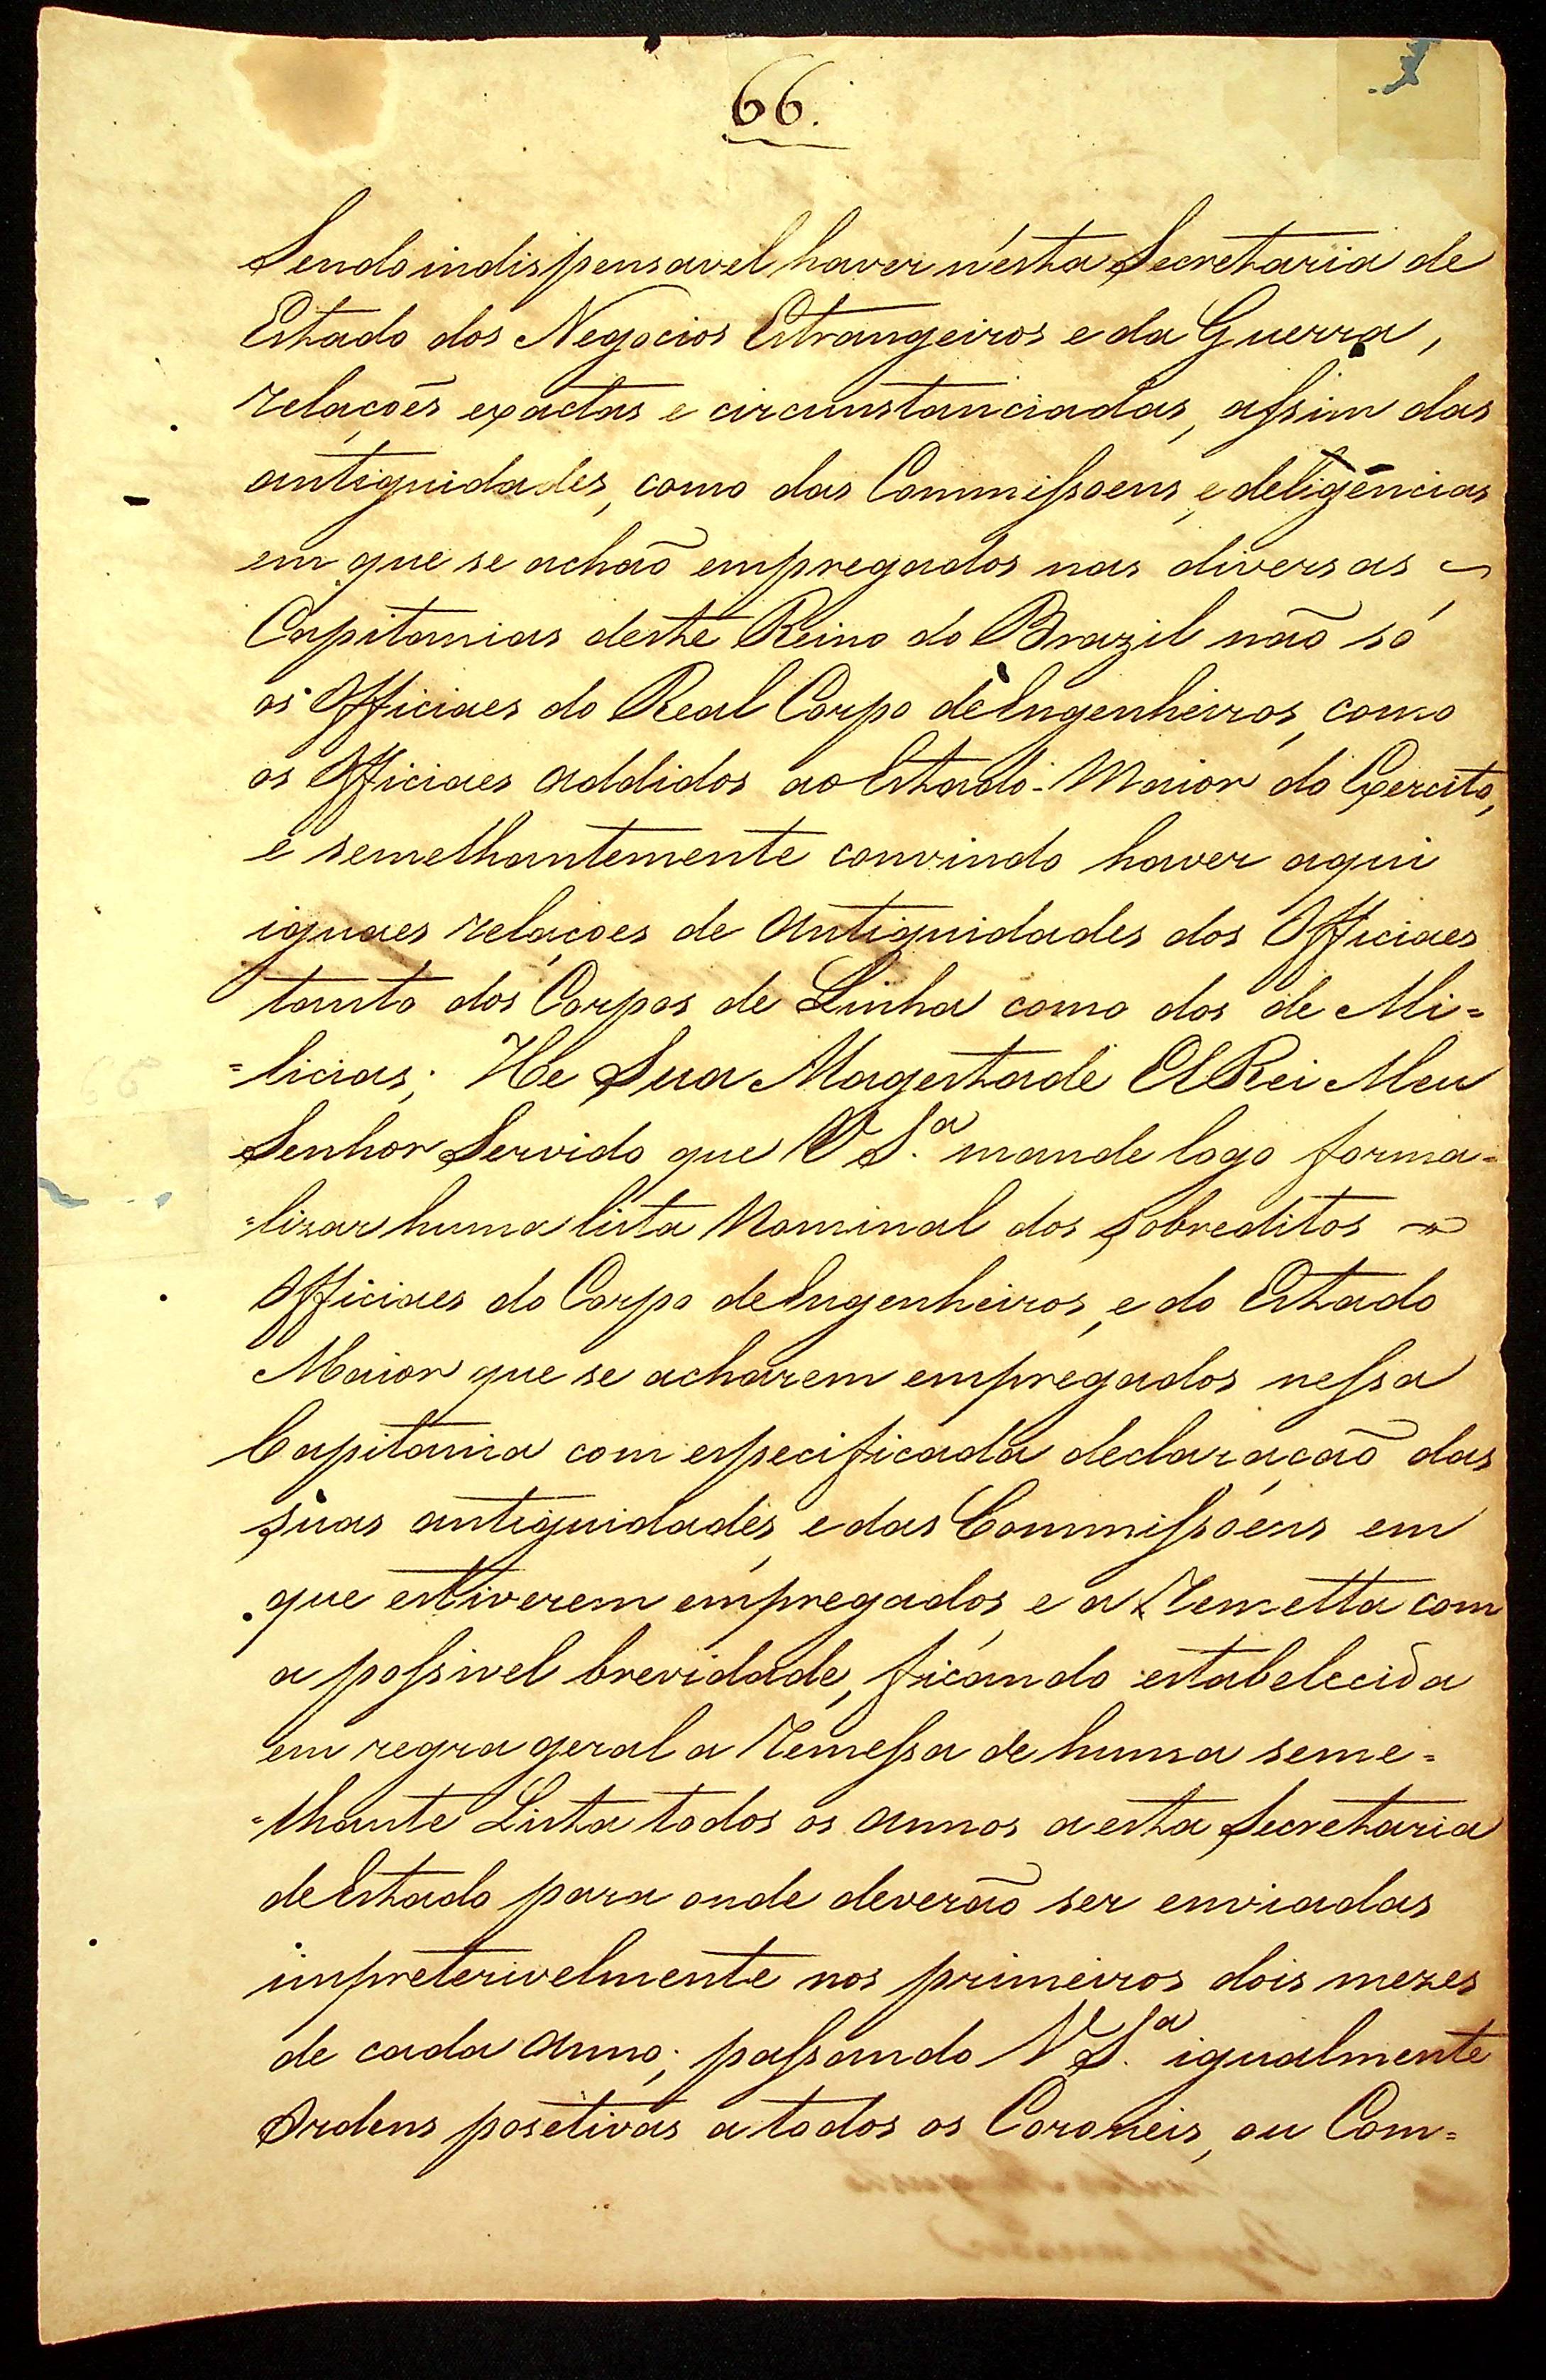 66.
Sendo indispensavel haver n'esta Secretaria de
Estado dos Negocios Estrangeiros e da Guerra,
relaçoẽs exactas e circunstanciadas, assim das
antiguidades, como das Commissoens, e deligências
em que se achaõ empregados nas diversas
Capitanias deste Reino do Brazil naõ só
os Officiaes do Real Corpo de Engenheiros, como
os Officiaes addidos ao Estado-Maior do Exercito,
e semelhantemente convindo haver aqui
iguaes relações de Antiguidades dos Officiaes
tanto dos Corpos de Linha como dos de Mi=
=licias; He Sua Magestade ElRei Meu
Senhor Servido que V S.ª mande logo forma=
=lizar huma lista Nominal dos sobreditos
Officiaes do Corpo de Engenheiros, e do Estado
Maior que se acharem empregados nessa
Capitania com especificada declaraçaõ das
suas antiguidades, e das Commissóens em
que estiverem empregados, e a Remetta com
a possivel brevidade, ficando estabelecida
em regra geral a Remessa de huma seme=
=lhante Lista todos os annos a esta Secretaria
de Estado para onde deverão ser enviadas
impreterivelmente nos primeiros dois mezes
de cada anno; passando V S.ª igualmente
Ordens posetivas a todos os Coroneis, ou Com=